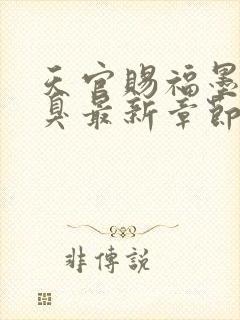 天官賜福墨
臭最新章節
非傳說